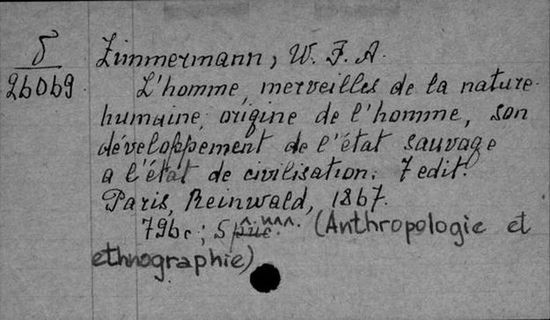 δ
26069
Zimmermann, W. F. A.
L'homme, merveilles de la nature
humaine, origine de l'homme, son
développement de l'état sauvage
a l'état de civilisation. 7 edit.
Paris, Reinwald, 1867.
796 c; (Anthropologie et
ethnographie)